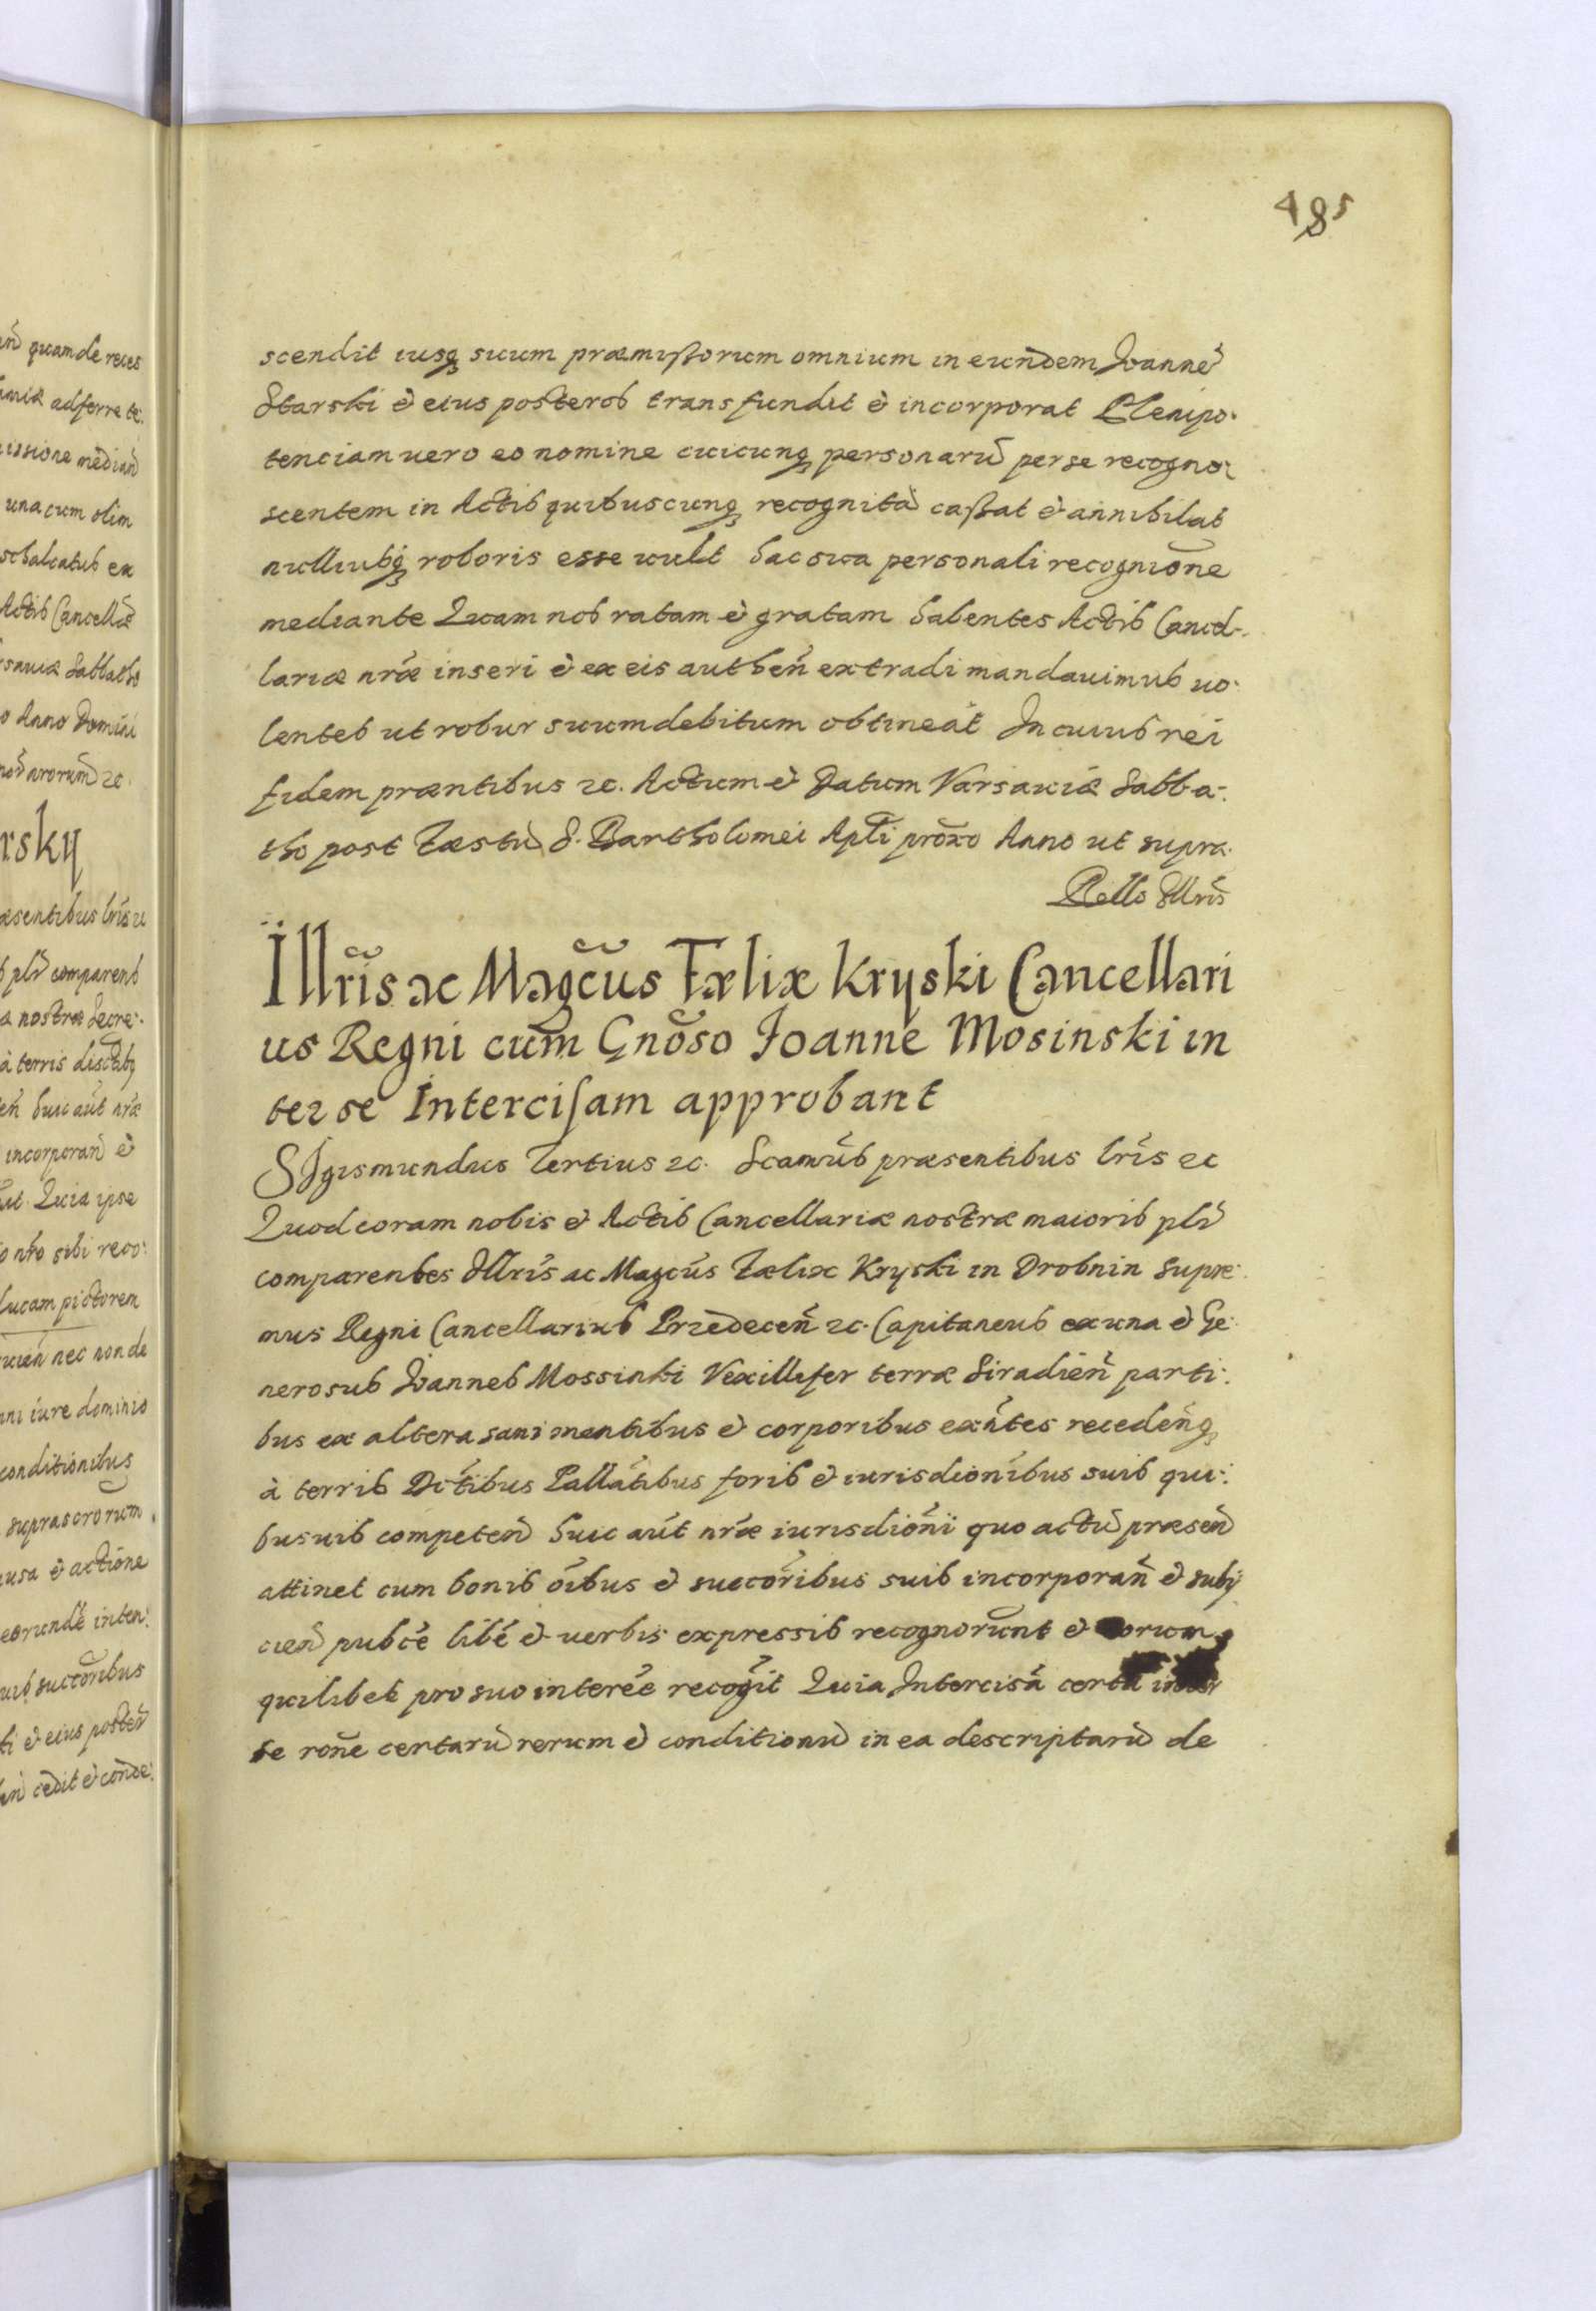 ūn quam de reces
amiæ adferre te:
issione median̄
una cum olim
schalcatus ex
Actis Cancellæ
rsauiæ Sabbatho
o Anno Domini
norū nrorum 2c.
rsky
æsentibus lr̄is 2c
s plr̄ comparens
æ nostræ Secre:
à terris distibꝫ
en̄ huic aūt nr̄æ
incorporan̄ &
ut. Quia ipse
o nr̄o sibi reco:
Lucam pictorem
uien̄ nec non de
mni iure dominio
conditionibus
suprascrorum
ausa & actione
eorundē inten:
uis succoribus
ki & eius posten̄
an̄ cedit & conde:
485
scendit iusqꝫ suum præmissorum omnium in eundem Joannē
Starski & eius posteros transfundit & incorporat Plenipo:
tenciam uero eo nomine cuicunqꝫ personarū per se recogno:
scentem in Actis quibuscunqꝫ recognitā cassat & annihilat
nulliusqꝫ roboris esse uult hac sua personali recogniōne
mediante Quam nos ratam & gratam habentes Actis Cancel-
lariæ nr̄æ inseri & ex eis authen̄ extradi mandauimus uo:
lentes ut robur suum debitum obtineat In cuius rei
fidem præntibus 2c. Actum & Datum Varsauiæ Sabba:
tho post Fæstū S. Bartholomei Apli prōxo Anno ut supra.
Rello Illris
Illr̄is ac Magcūs Fælix Kryski Cancellari
us Regni cum Gnōso Joanne Mosinski in
ter se Intercisam approbant
SIgismundus Tertius 2c. Scamūs præsentibus lr̄is 2c
Quod coram nobis & Actis Cancellariæ nostræ maioris plr̄
comparentes Illris ac Magcūs Fælix Kryski in Drobnin Supre:
mus Regni Cancellarius Przedecen̄ 2c. Capitaneus ex una & Ge:
nerosus Joannes Mossinki Vexillifer terræ Siradien̄ parti:
bus ex altera sani mentibus & corporibus exn̄tes receden̄qꝫ
à terris Dctibus Pallātibus foris & iurisdionībus suis qui:
busuis competen̄ huic aūt nr̄æ iurisdionī quo actū præsen̄
attinet cum bonis oībus & succorībus suis incorporan̄ & subij
cien̄ pubcē libē & uerbis expressis recognorunt & eorum
quilibet pro suo interēe recogīt Quia Intercisā certā inter
se rone certarū rerum & conditionū in ea descriptarū de